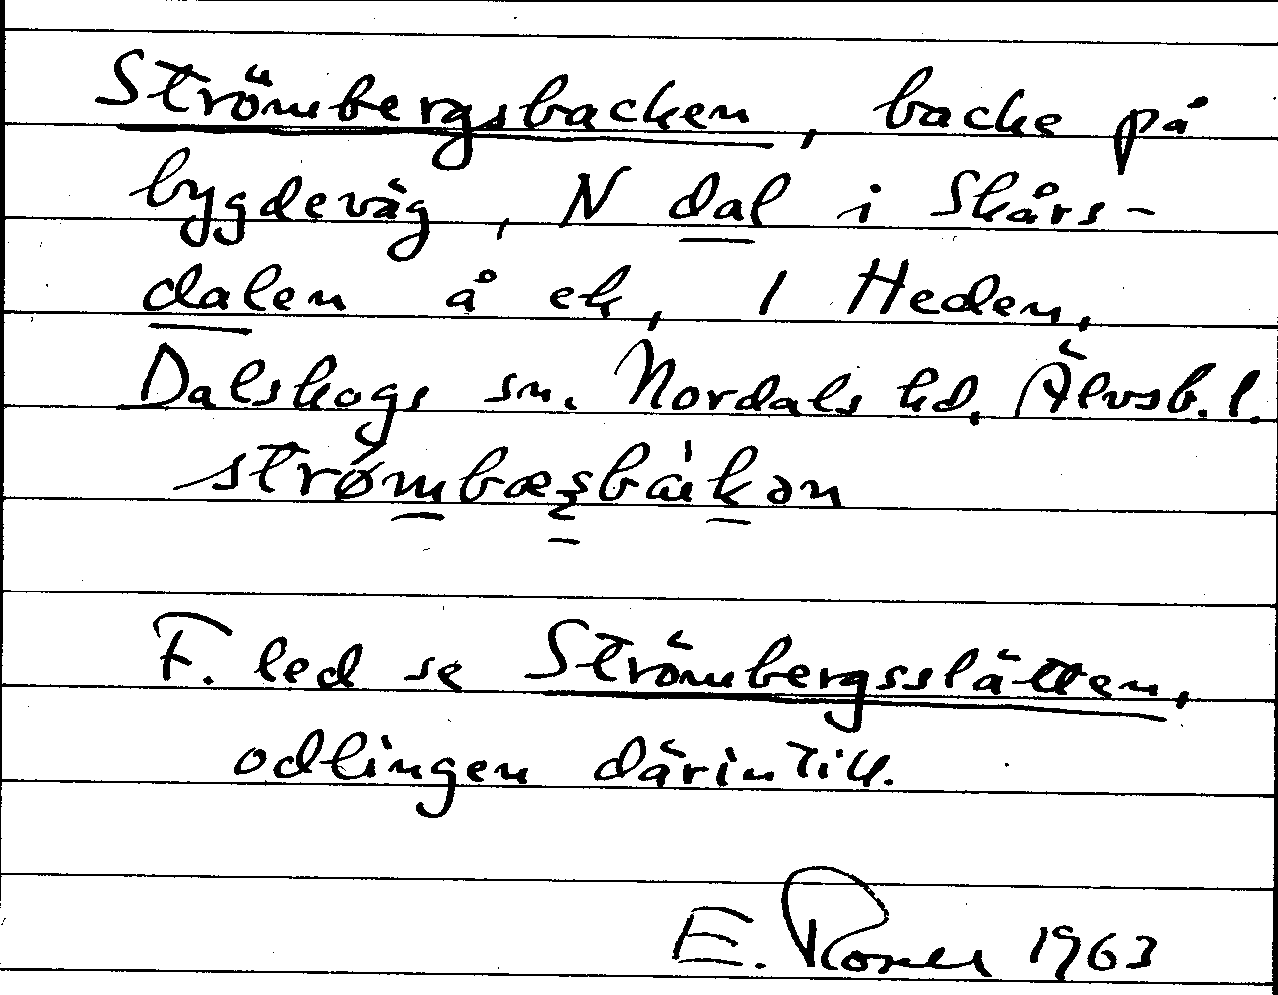 Strömbergsbacken, backe på
bygdeväg, N dal i Skårs-
dalen å ek, 1 Heden,
Dalskogs sn. Nordals hd, Älvsb. l.
strømbæsbakən
F. led se Strömbergsslätten,
odlingen därintill.
E. 1963